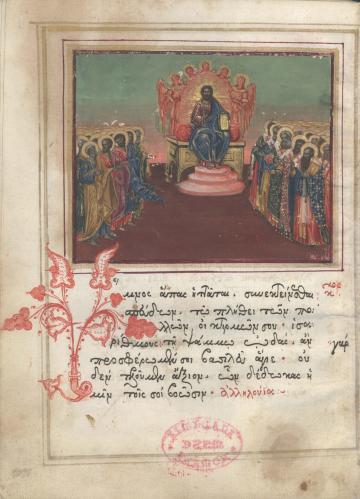 Ὕμνος ἅπας ἡττᾶται. συνεκτείνεσθαι
σπεύδων, τῷ πλήθει τῶν πο
λλῶν, οἰκτιρμῶν σου. ἰσα
ρίθμους τῇ ψάμμῳ ᾠδὰς, ἂν
γὰρ
προσφέρωμέν σοι βασιλεῦ ἅγιε. οὐ
δὲν τελοῦμεν ἄξιον. ὧν δέδωκας ἡ
μῖν τοῖς σοὶ βοῶσιν. ἀλληλούια